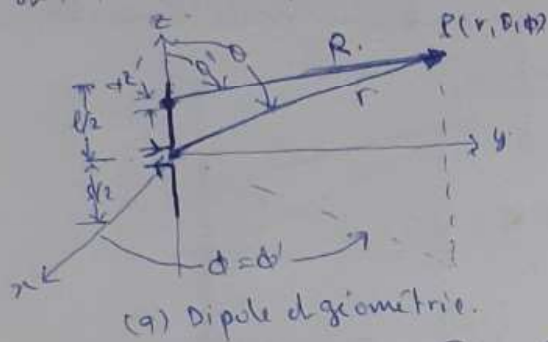 z
P(r, θ, φ)
θ
θ'
R
z'
r
l/2
y
l/2
φ = φ'
x
(a) Dipole d géométrie.